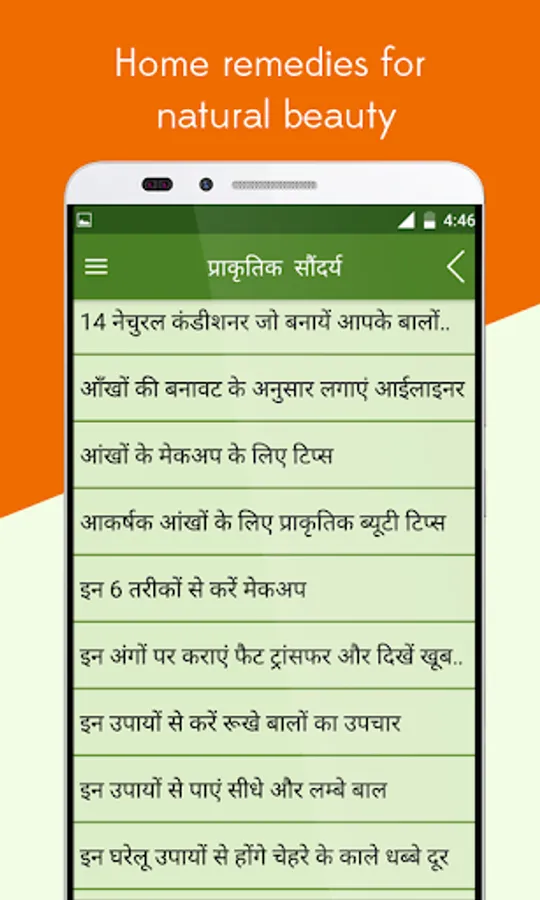 Home remedies for
natural beauty
4:46
प्राकृतिक सौंदर्य
14 नेचुरल कंडीशनर जो बनायें आपके बालों..
आँखों की बनावट के अनुसार लगाएं आईलाइनर
आंखों के मेकअप के लिए टिप्स
आकर्षक आंखों के लिए प्राकृतिक ब्यूटी टिप्स
इन 6 तरीकों से करें मेकअप
इन अंगों पर कराएं फैट ट्रांसफर और दिखें खूब..
इन उपायों से करें रूखे बालों का उपचार
इन उपायों से पाएं सीधे और लम्बे बाल
इन घरेलू उपायों से होंगे चेहरे के काले धब्बे दूर